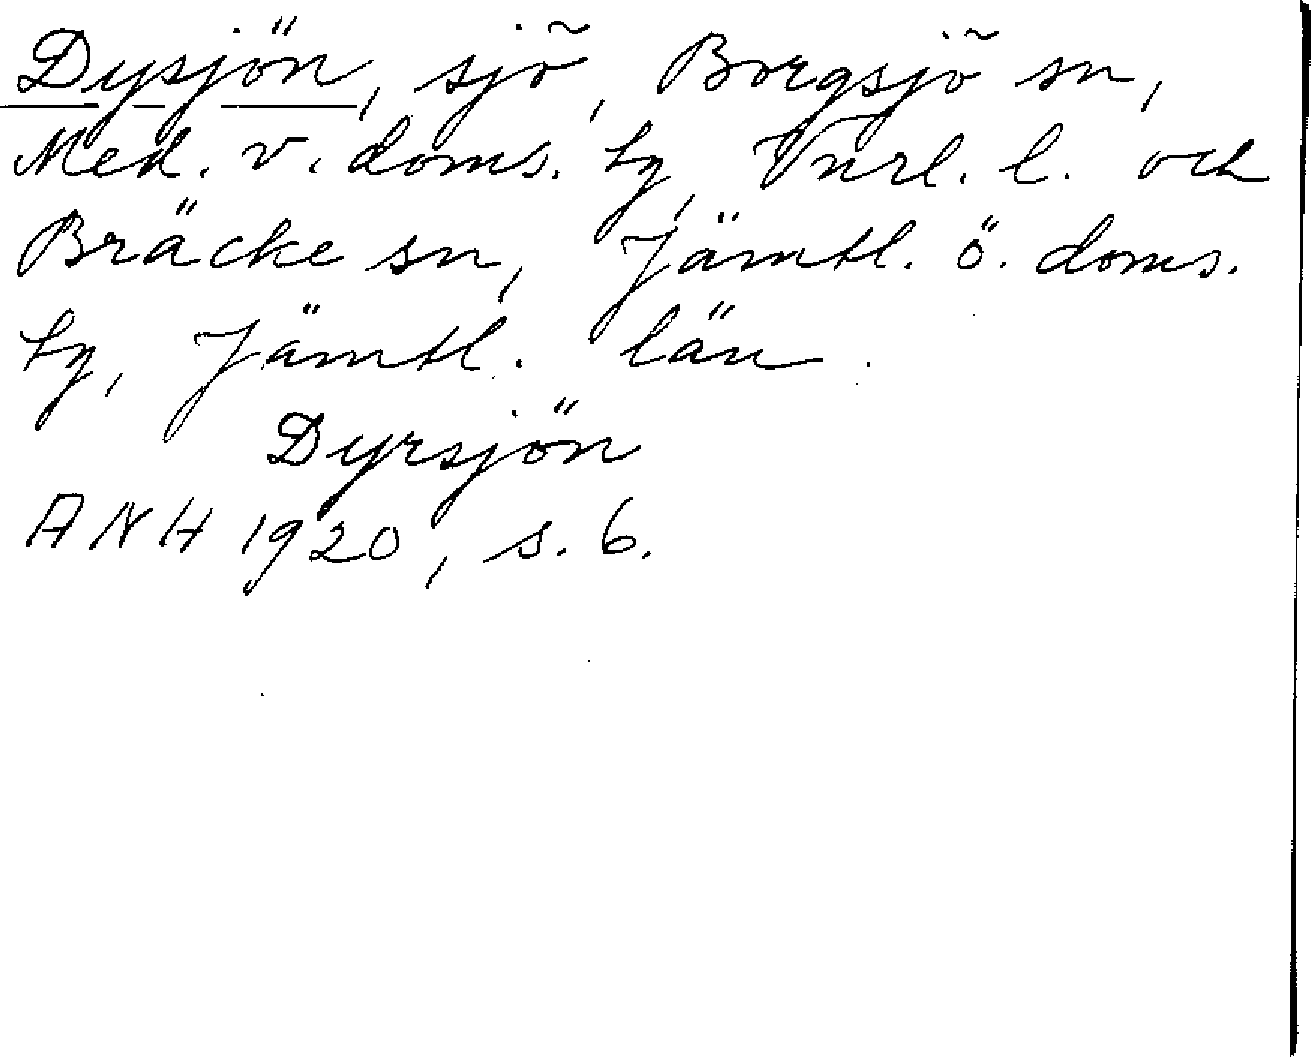 Dysjön, sjö, Borgsjö sn,
Med. v. doms. tg, Vnrl. l. och
Bräcke sn, Jämtl. ö. doms.
tg, Jämtl. län.
Dyrsjön
ANH 1920, s. 6.